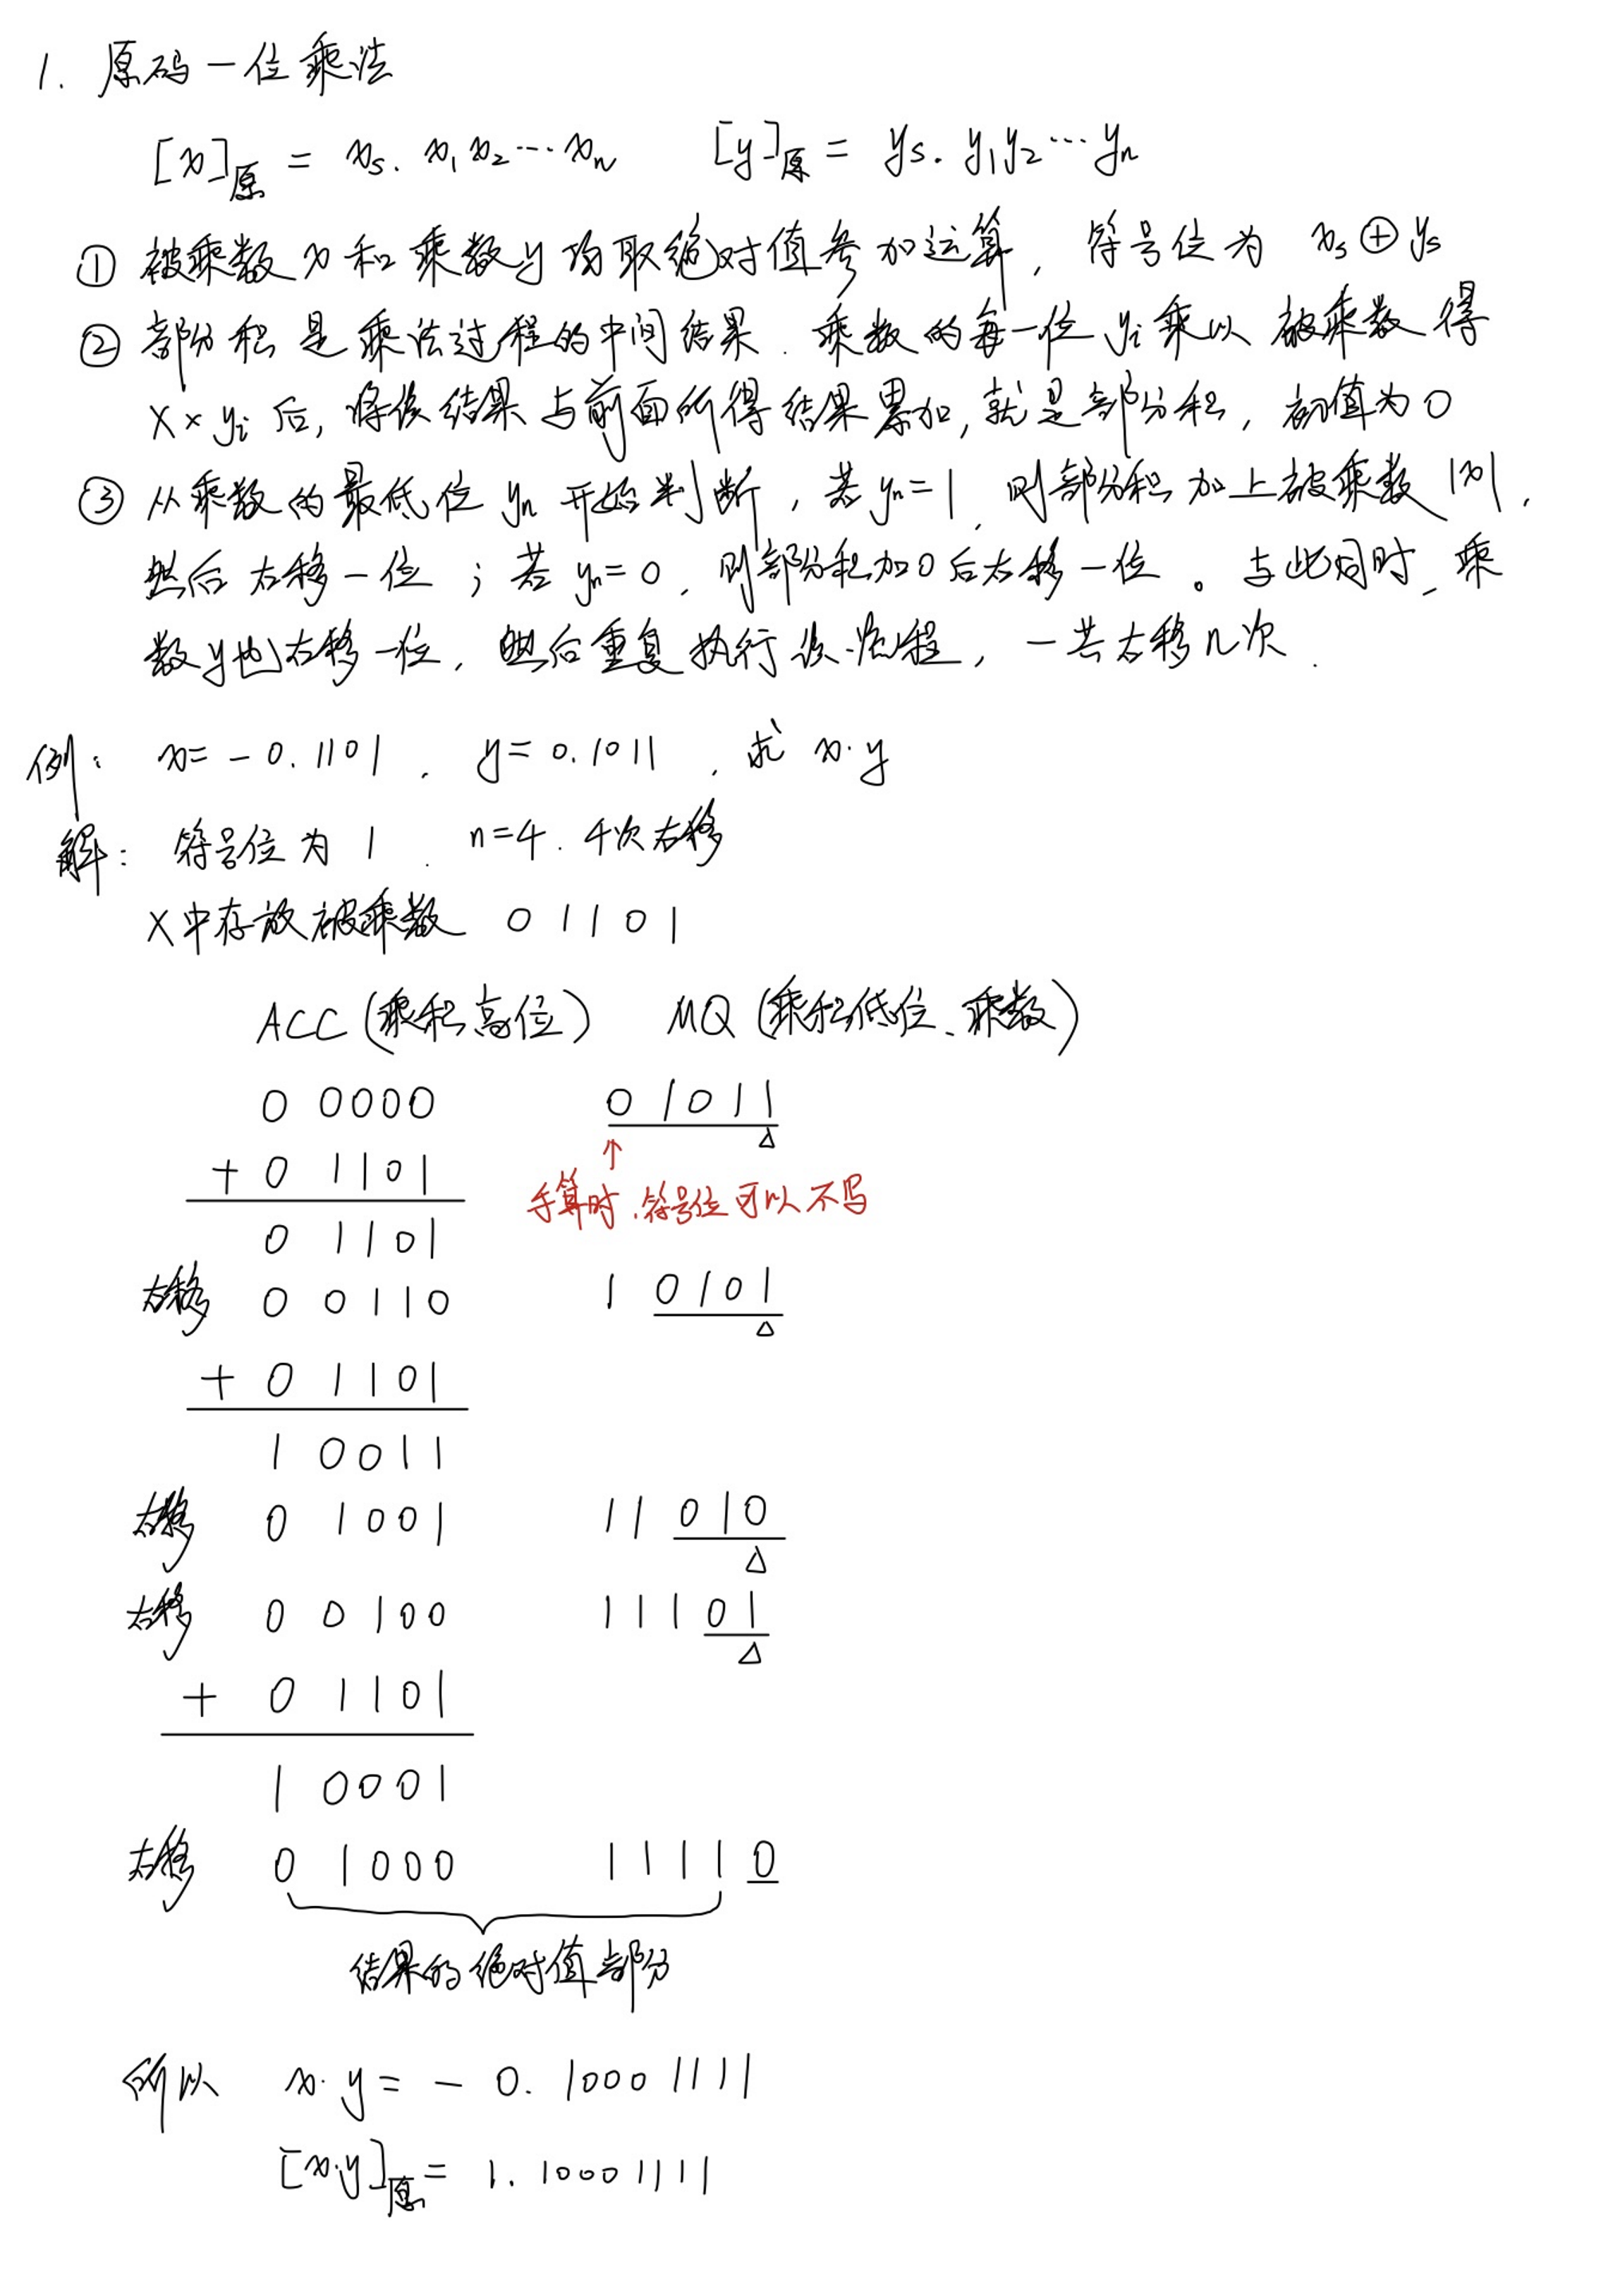 1. 原码一位乘法
[x]原 = xs. x1 x2 ··· xn  [y]原 = ys. y1 y2 ··· yn
① 被乘数 x 和乘数 y 均取绝对值参加运算, 符号位为 xs ⊕ ys
② 部分积是乘法过程的中间结果. 乘数的每一位 yi 乘以被乘数得
X × yi 后, 将该结果与前面所得结果累加, 就是部分积, 初值为 0
③ 从乘数的最低位 yn 开始判断, 若 yn = 1, 则部分积加上被乘数 |x|,
然后右移一位; 若 yn = 0, 则部分积加 0 后右移一位。与此同时, 乘
数 y 也右移一位, 然后重复执行该流程, 一共右移 n 次.
例: x = - 0. 1101, y = 0. 1011, 求 x·y
解: 符号位为 1. n = 4. 4次右移
X中存放被乘数 0 1101
ACC (乘积高位) MQ (乘积低位、乘数)
0 0000 01011
△
+ 0 1101 ↑
手算时, 符号位可以不写
0 1101
右移 0 0110 1 0101
△
+ 0 1101
1 0011
右移 0 1001 11 010
△
右移 0 0100 111 01
△
+ 0 1101
1 0001
右移 0 1000 1111 0
结果的绝对值部分
所以 x·y = - 0. 10001111
[x·y]原 = 1. 10001111